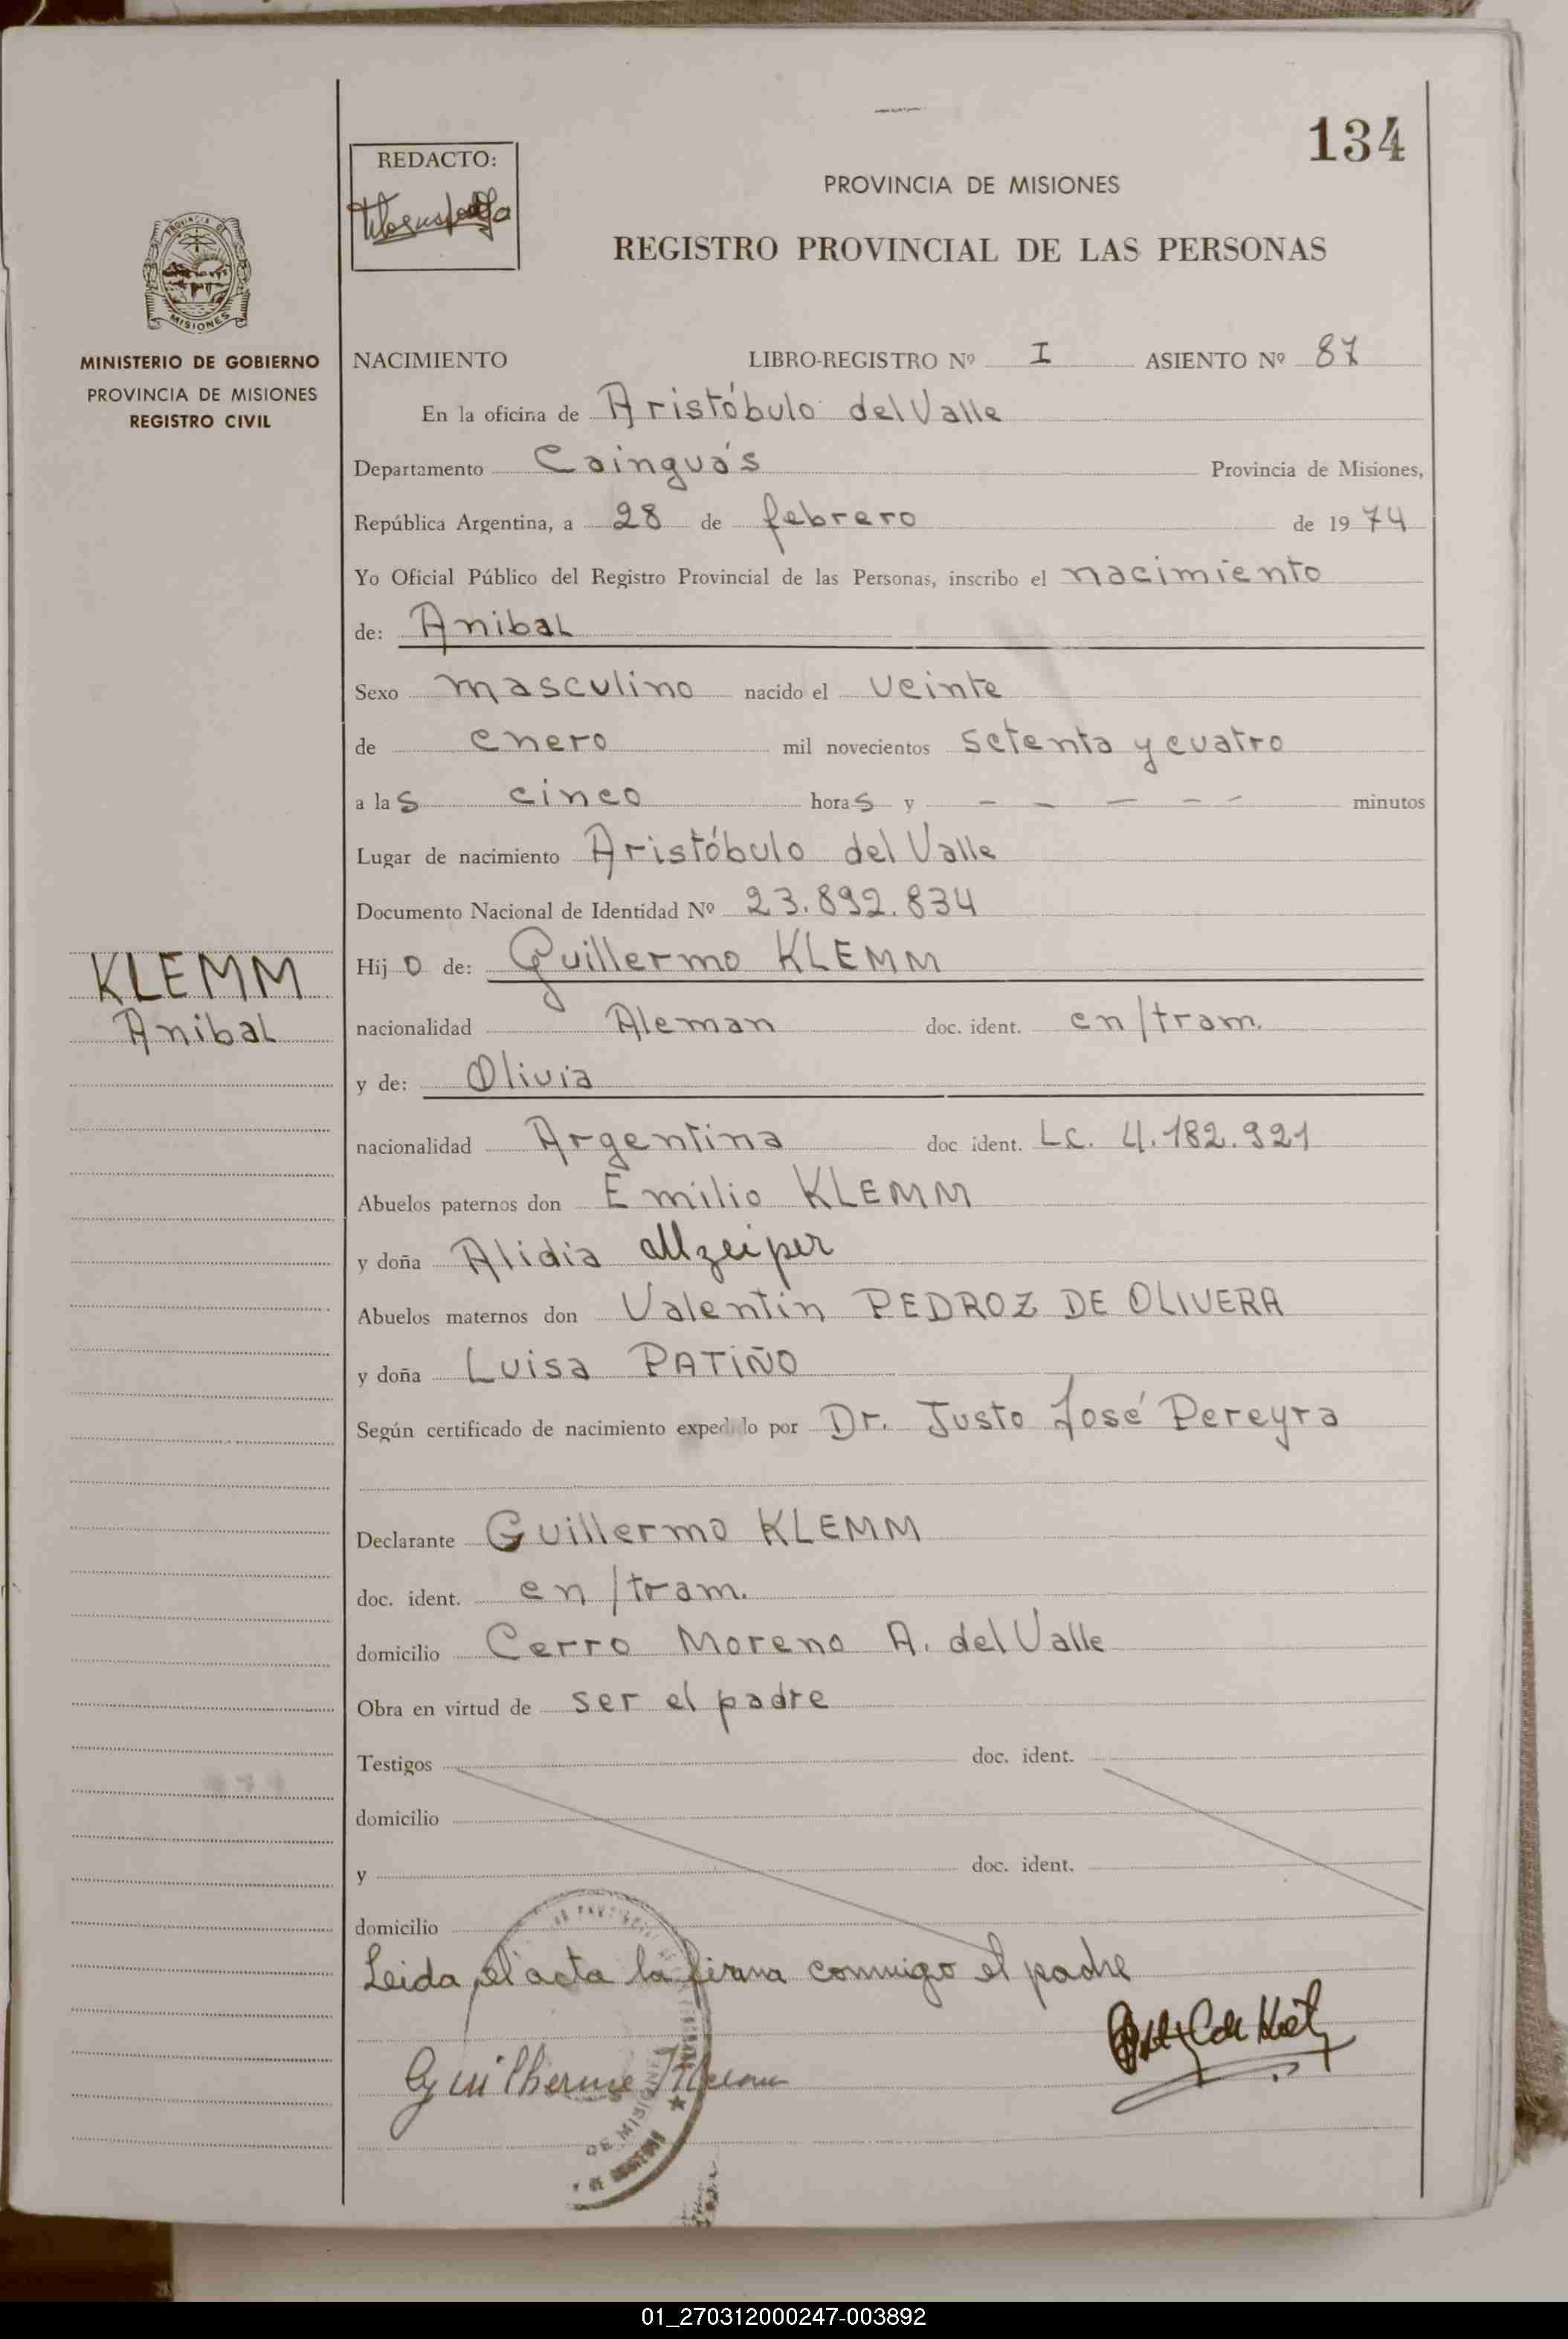 134
REDACTO:
PROVINCIA DE MISIONES
REGISTRO PROVINCIAL DE LAS PERSONAS
PROVINCIA DE
MISIONES
MINISTERIO DE GOBIERNO
PROVINCIA DE MISIONES
REGISTRO CIVIL
NACIMIENTO LIBRO-REGISTRO Nº I ASIENTO Nº 87
En la oficina de Aristóbulo del Valle
Departamento Cainguás Provincia de Misiones,
República Argentina, a 28 de febrero de 1974
Yo Oficial Público del Registro Provincial de las Personas, inscribo el nacimiento
de: Anibal
Sexo masculino nacido el veinte
de enero mil novecientos setenta y cuatro
a las cinco horas y - - - - - minutos
Lugar de nacimiento Aristóbulo del Valle
Documento Nacional de Identidad Nº 23.892.834
KLEMM
Anibal
Hijo de: Guillermo KLEMM
nacionalidad Aleman doc. ident. en/tram.
y de: Olivia
nacionalidad Argentina doc ident. Lc. 4.182.921
Abuelos paternos don Emilio KLEMM
y doña Alidia
Abuelos maternos don Valentin PEDROZ DE OLIVERA
y doña Luisa PATIÑO
Según certificado de nacimiento expedido por Dr. Justo José Pereyra
Declarante Guillermo KLEMM
doc. ident. en/tram.
domicilio Cerro Moreno A. del Valle
Obra en virtud de ser el padre
Testigos doc. ident.
domicilio
y doc. ident.
domicilio
Leida el acta la firma conmigo el padre
Guilherme
DE MISIONES
01_270312000247-003892